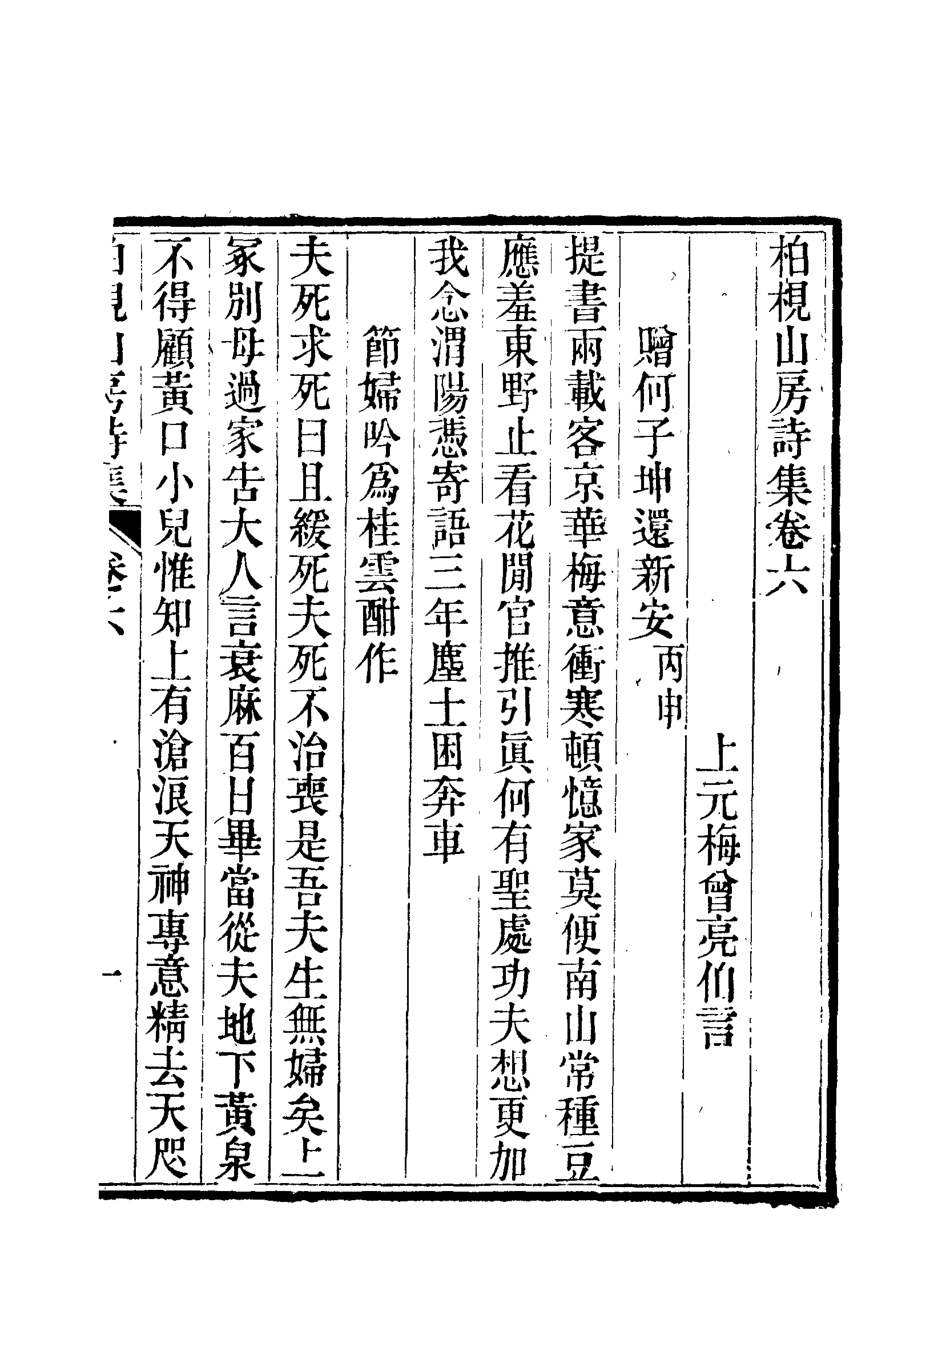 柏梘山房詩集卷六
上元梅曾亮伯言
贈何子坤還新安丙申
提書兩載客京華梅意衝寒頓憶家莫便南山常種豆
應羞東野止看花閒官推引眞何有聖處功夫想更加
我念渭陽憑寄語三年塵土困奔車
節婦吟爲桂雲酣作
夫死求死曰且緩死夫死不治喪是吾夫生無婦矣上
冢別母過家告大人言衰麻百日畢當從夫地下黃泉
不得顧黃口小兒惟知上有滄浪天神專意精去天咫
柏梘山房詩集 卷六 一